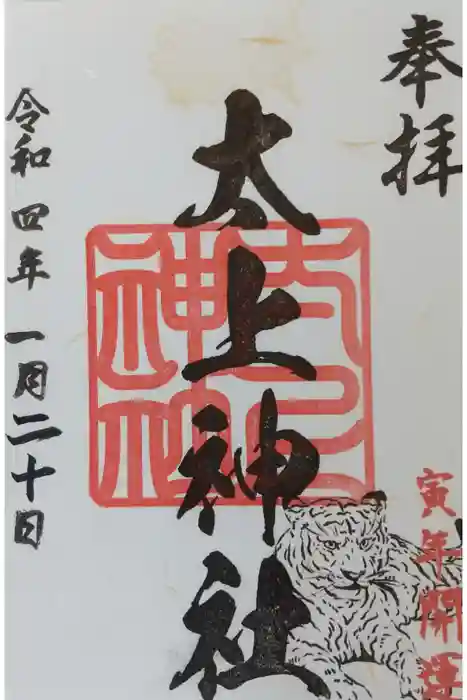 奉拝
太上神社
令和四年一月二十日
寅年開運